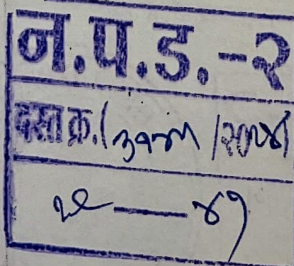 न.प.ड.-२
दस्त क्र.(३१७१/२०२४)
२९ — ४१